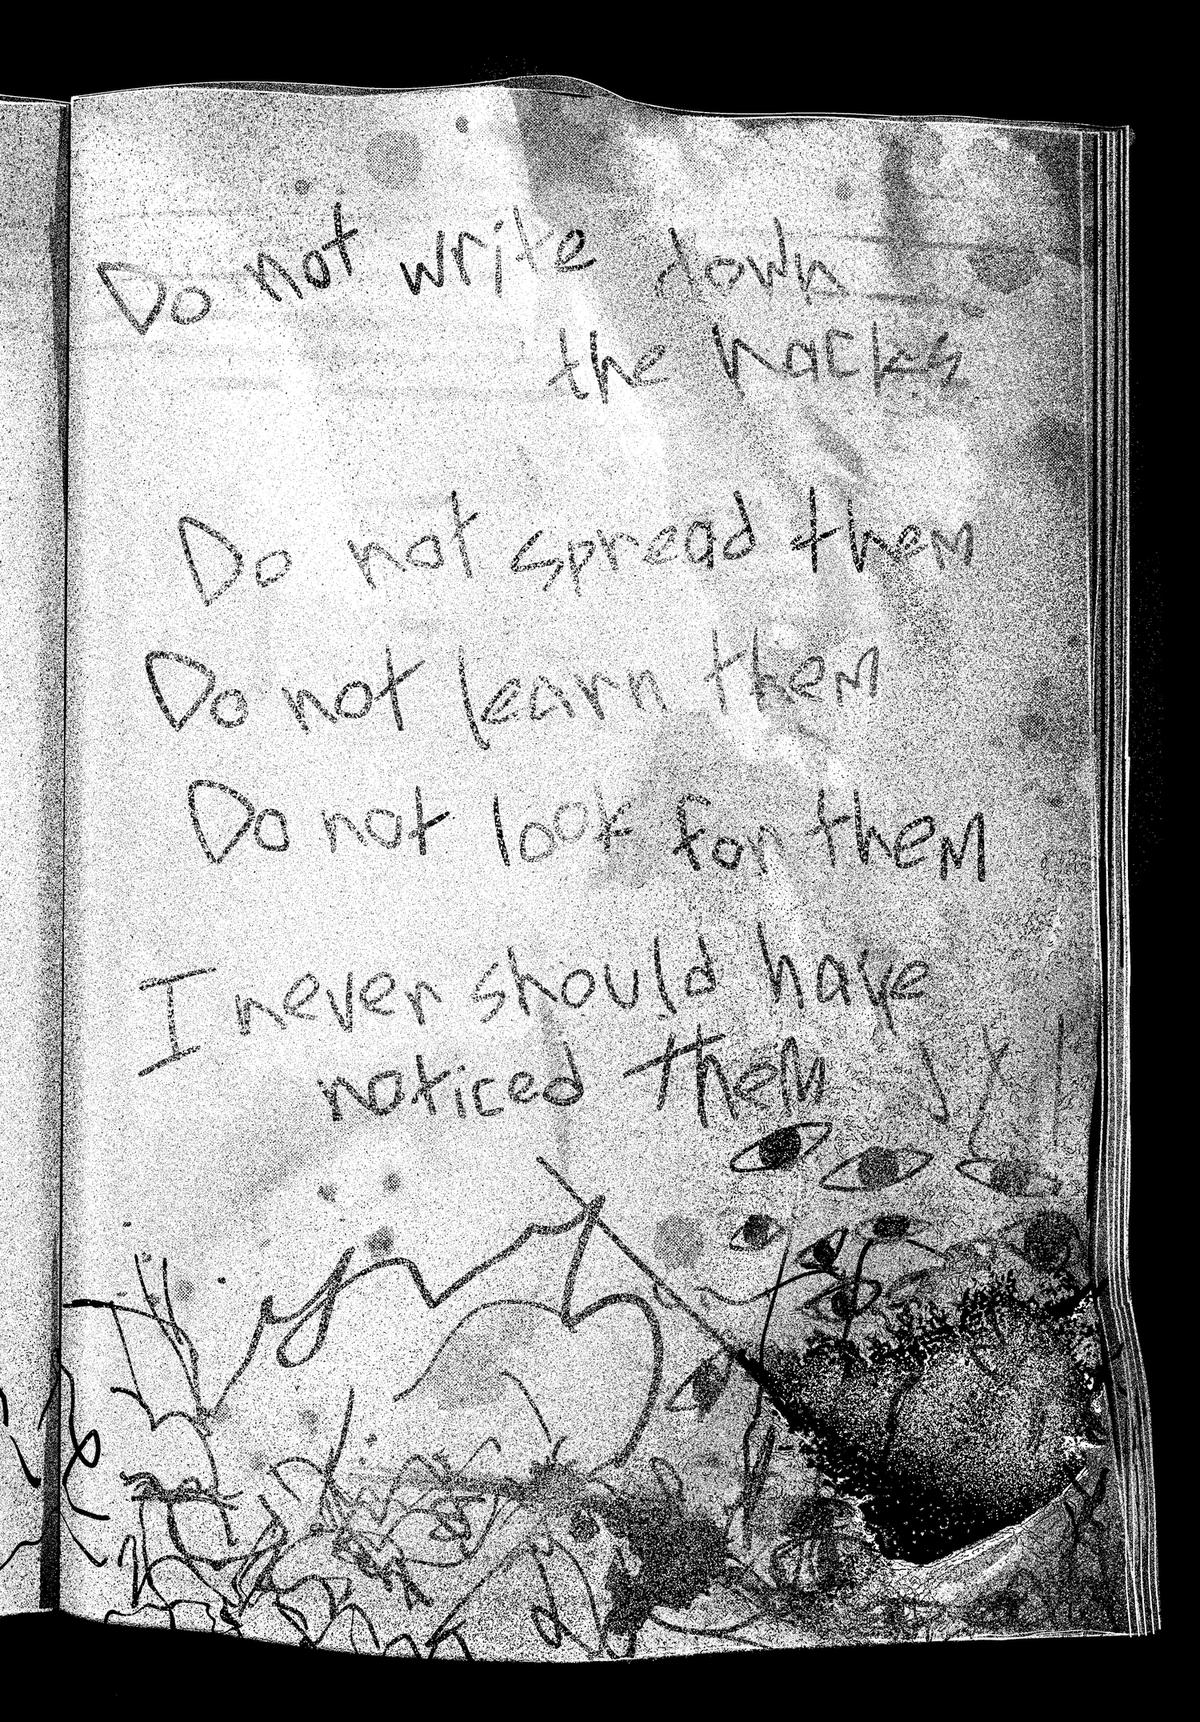 Do not write down
the hacks
Do not spread them
Do not learn them
Do not look for them
I never should have
noticed them